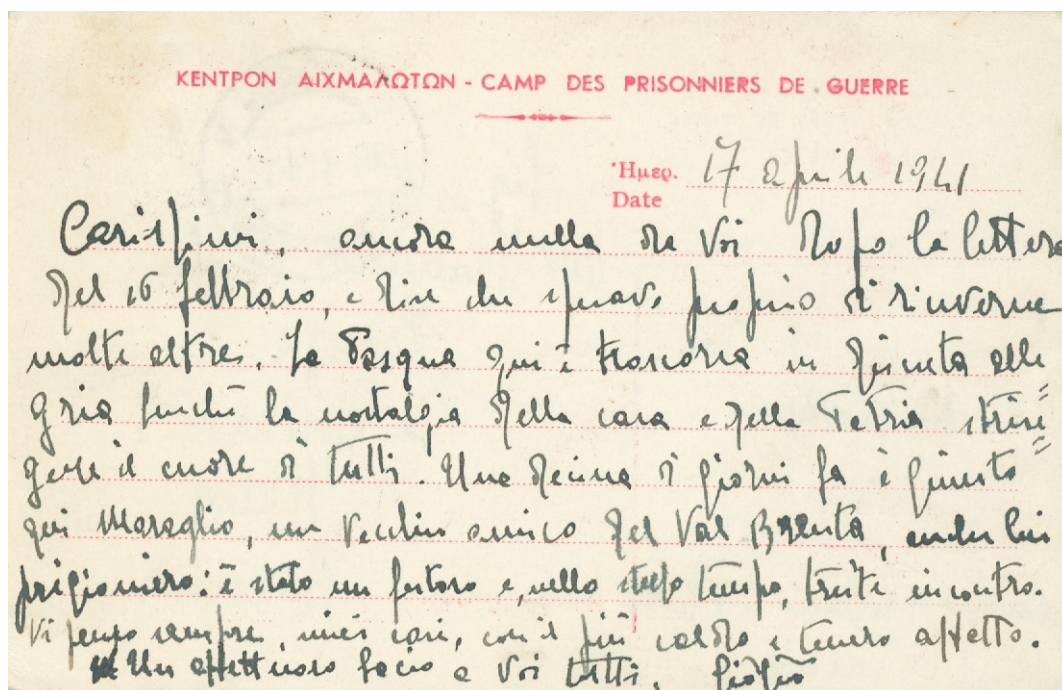 ΚΕΝΤΡΟΝ ΑΙΧΜΑΛΩΤΩΝ - CAMP DES PRISONNIERS DE GUERRE
Ἡμερ. 17 aprile 1941
Date
Carissimi, ancora nulla da Voi dopo la lettera
del 16 febbraio, e dire che speravo proprio di riceverne
molte altre. La Pasqua qui è trascorsa in discreta alle
gria benché la nostalgia della casa e della Patria strin=
gesse il cuore di tutti. Una decina di giorni fa è giunto
qui Maraglio, un vecchio amico del Val Brenta, anche lui
prigioniero: è stato un festoso e, nello stesso tempo, triste incontro.
Vi penso sempre, miei cari, con il più caldo e tenero affetto.
Un affettuoso bacio a Voi tutti. Giorgio